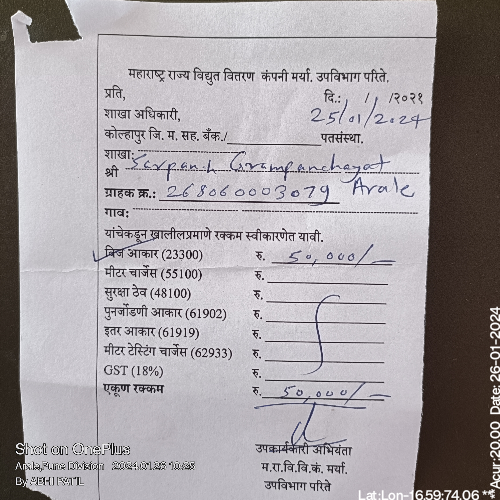 महाराष्ट्र राज्य विद्युत वितरण कंपनी मर्या. उपविभाग परिते.
प्रति, दि.: / /२०२१
शाखा अधिकारी, 25/01/2024
कोल्हापुर जि. म. सह. बँक./ पतसंस्था.
शाखा:
श्री Sarpanch Grampanchayat
ग्राहक क्र.: 268060003079 Arale
गाव:
यांचेकडून खालीलप्रमाणे रक्कम स्वीकारणेत यावी.
विज आकार (23300) रु. 50,000/-
मीटर चार्जेस (55100) रु.
सुरक्षा ठेव (48100) रु.
पुनर्जोडणी आकार (61902) रु.
इतर आकार (61919) रु.
मीटर टेस्टिंग चार्जेस (62933) रु.
GST (18%) रु.
एकूण रक्कम रु. 50,000/-
उपकार्यकारी अभियंता
म.रा.वि.वि.कं. मर्या.
उपविभाग परिते
Shot on OnePlus
Arale,Pune Division 2024.01.26 10:25
By ABHI PATIL
Lat:Lon-16.59:74.06 **
Acur:2000 Date: 26-01-2024